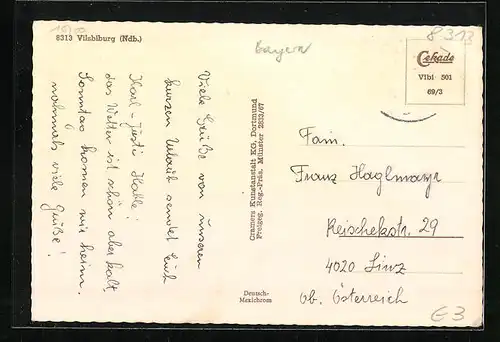 8313 Vilsbiburg (Ndb.)
Viele Grüße von unseren
kurzen Urlaub sendet Euch
Karl-
das Wetter ist schön aber kalt.
Sonntag komen wir heim.
nohmals viele Grüße!
Cramers Kunstanstalt KG, Dortmund
Freigeg. Reg.-Präs. Münster 2833/67
Deutsch-
Mexichrom
Bayern
8313
Cekade
Vibi 501
69/3
Fam.
Franz Haglmayr
Reischekstr. 29
4020 Linz
Ob. Österreich
E3